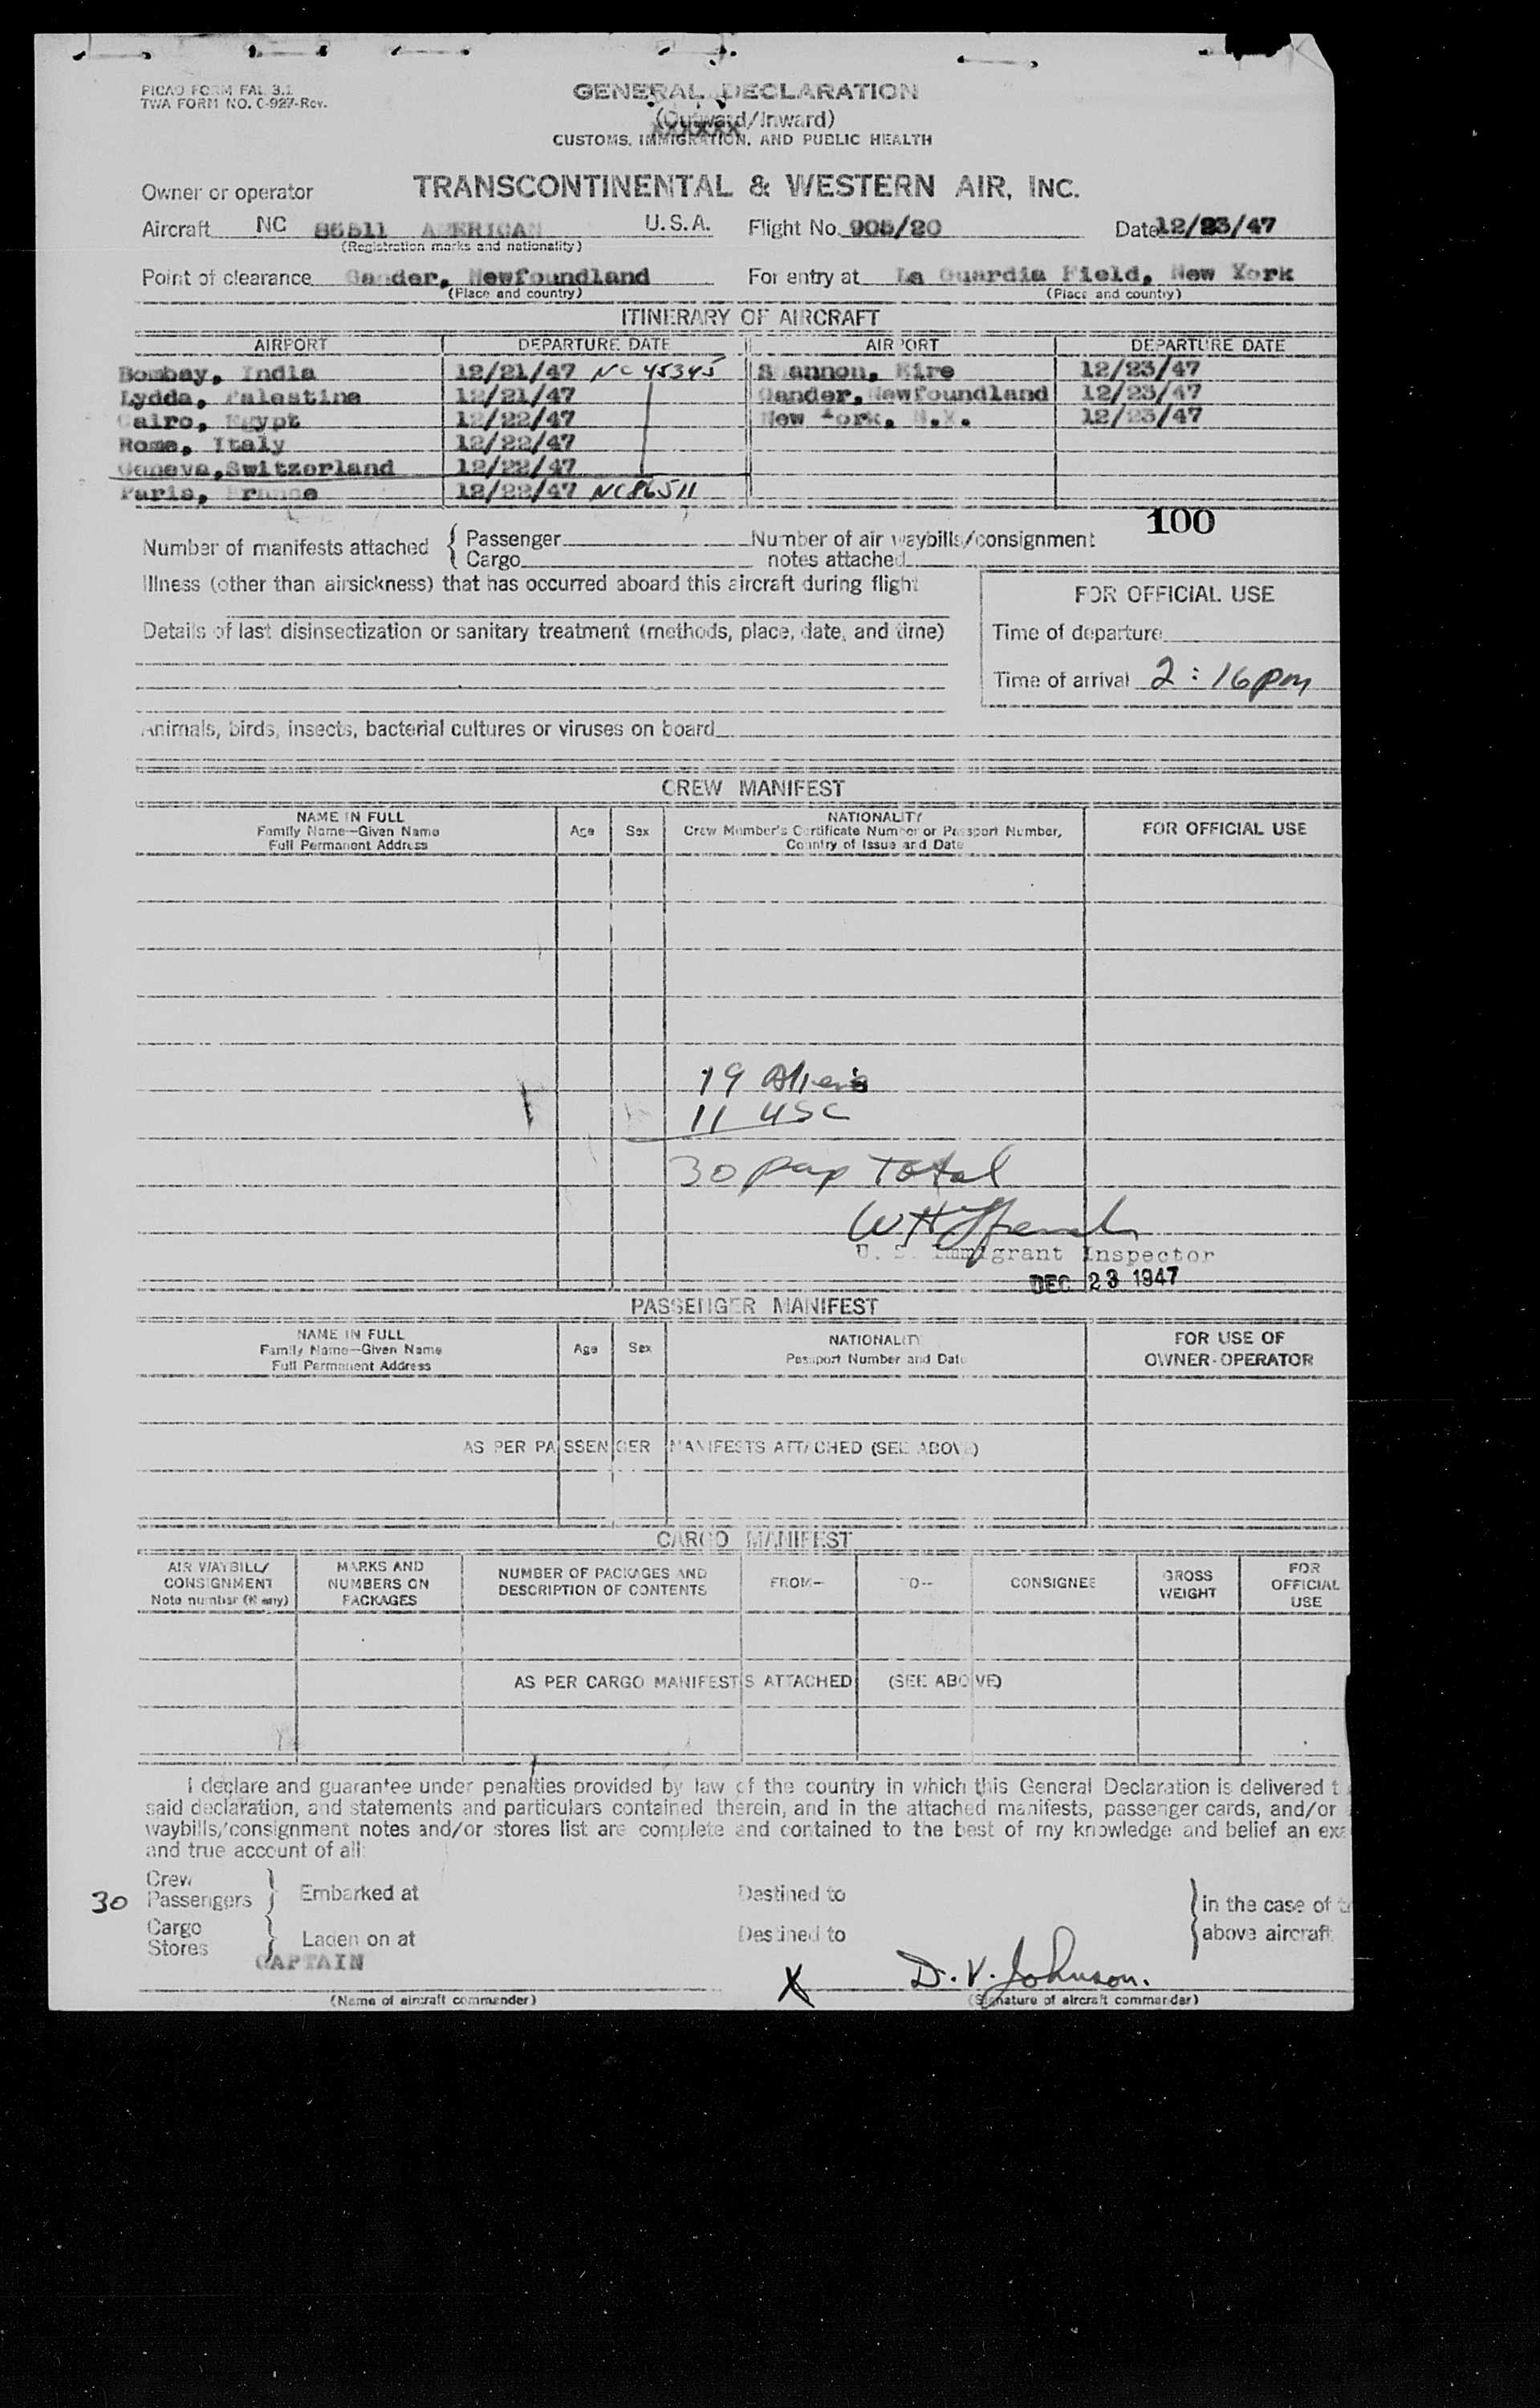 PICAO FORM FAL 3.1
TWA FORM NO. C-927-Rev.
GENERAL DECLARATION
(Outward/Inward)
XXXXXX
CUSTOMS, IMMIGRATION, AND PUBLIC HEALTH
Owner or operator TRANSCONTINENTAL & WESTERN AIR, INC.
Aircraft NC 86511 AMERICAN U.S.A. Flight No. 905/20 Date 12/23/47
(Registration marks and nationality)
Point of clearance Gander, Newfoundland For entry at La Guardia Field, New York
(Place and country) (Place and country)
ITINERARY OF AIRCRAFT
AIRPORT DEPARTURE DATE AIRPORT DEPARTURE DATE
Bombay, India 12/21/47 NC 45345 Shannon, Eire 12/23/47
Lydda, Palestine 12/21/47 Gander, Newfoundland 12/23/47
Cairo, Egypt 12/22/47 New York, N.Y. 12/23/47
Rome, Italy 12/22/47
Geneva, Switzerland 12/22/47
Paris, France 12/22/47 NC86511
100
Number of manifests attached { Passenger Number of air waybills/consignment
Cargo notes attached
Illness (other than airsickness) that has occurred aboard this aircraft during flight
FOR OFFICIAL USE
Details of last disinsectization or sanitary treatment (methods, place, date, and time) Time of departure
Time of arrival 2:16 pm
Animals, birds, insects, bacterial cultures or viruses on board
CREW MANIFEST
NAME IN FULL
Family Name—Given Name
Full Permanent Address
Age Sex
NATIONALITY
Crew Member's Certificate Number or Passport Number,
Country of Issue and Date
FOR OFFICIAL USE
19 Aliens
11 USC
30 pap Total
U. S. Immigrant Inspector
DEC 23 1947
PASSENGER MANIFEST
NAME IN FULL
Family Name—Given Name
Full Permanent Address
Age Sex
NATIONALITY
Passport Number and Date
FOR USE OF
OWNER-OPERATOR
AS PER PASSENGER MANIFESTS ATTACHED (SEE ABOVE)
CARGO MANIFEST
AIR WAYBILL/
CONSIGNMENT
Note number (If any)
MARKS AND
NUMBERS ON
PACKAGES
NUMBER OF PACKAGES AND
DESCRIPTION OF CONTENTS
FROM— TO— CONSIGNEE
GROSS
WEIGHT
FOR
OFFICIAL
USE
AS PER CARGO MANIFESTS ATTACHED (SEE ABOVE)
I declare and guarantee under penalties provided by law of the country in which this General Declaration is delivered t
said declaration, and statements and particulars contained therein, and in the attached manifests, passenger cards, and/or
waybills/consignment notes and/or stores list are complete and contained to the best of my knowledge and belief an exa
and true account of all:
Crew
30 Passengers } Embarked at Destined to in the case of t
Cargo
Stores } Laden on at Destined to above aircraft
CAPTAIN
X D. V. Johnson.
(Name of aircraft commander) (Signature of aircraft commander)